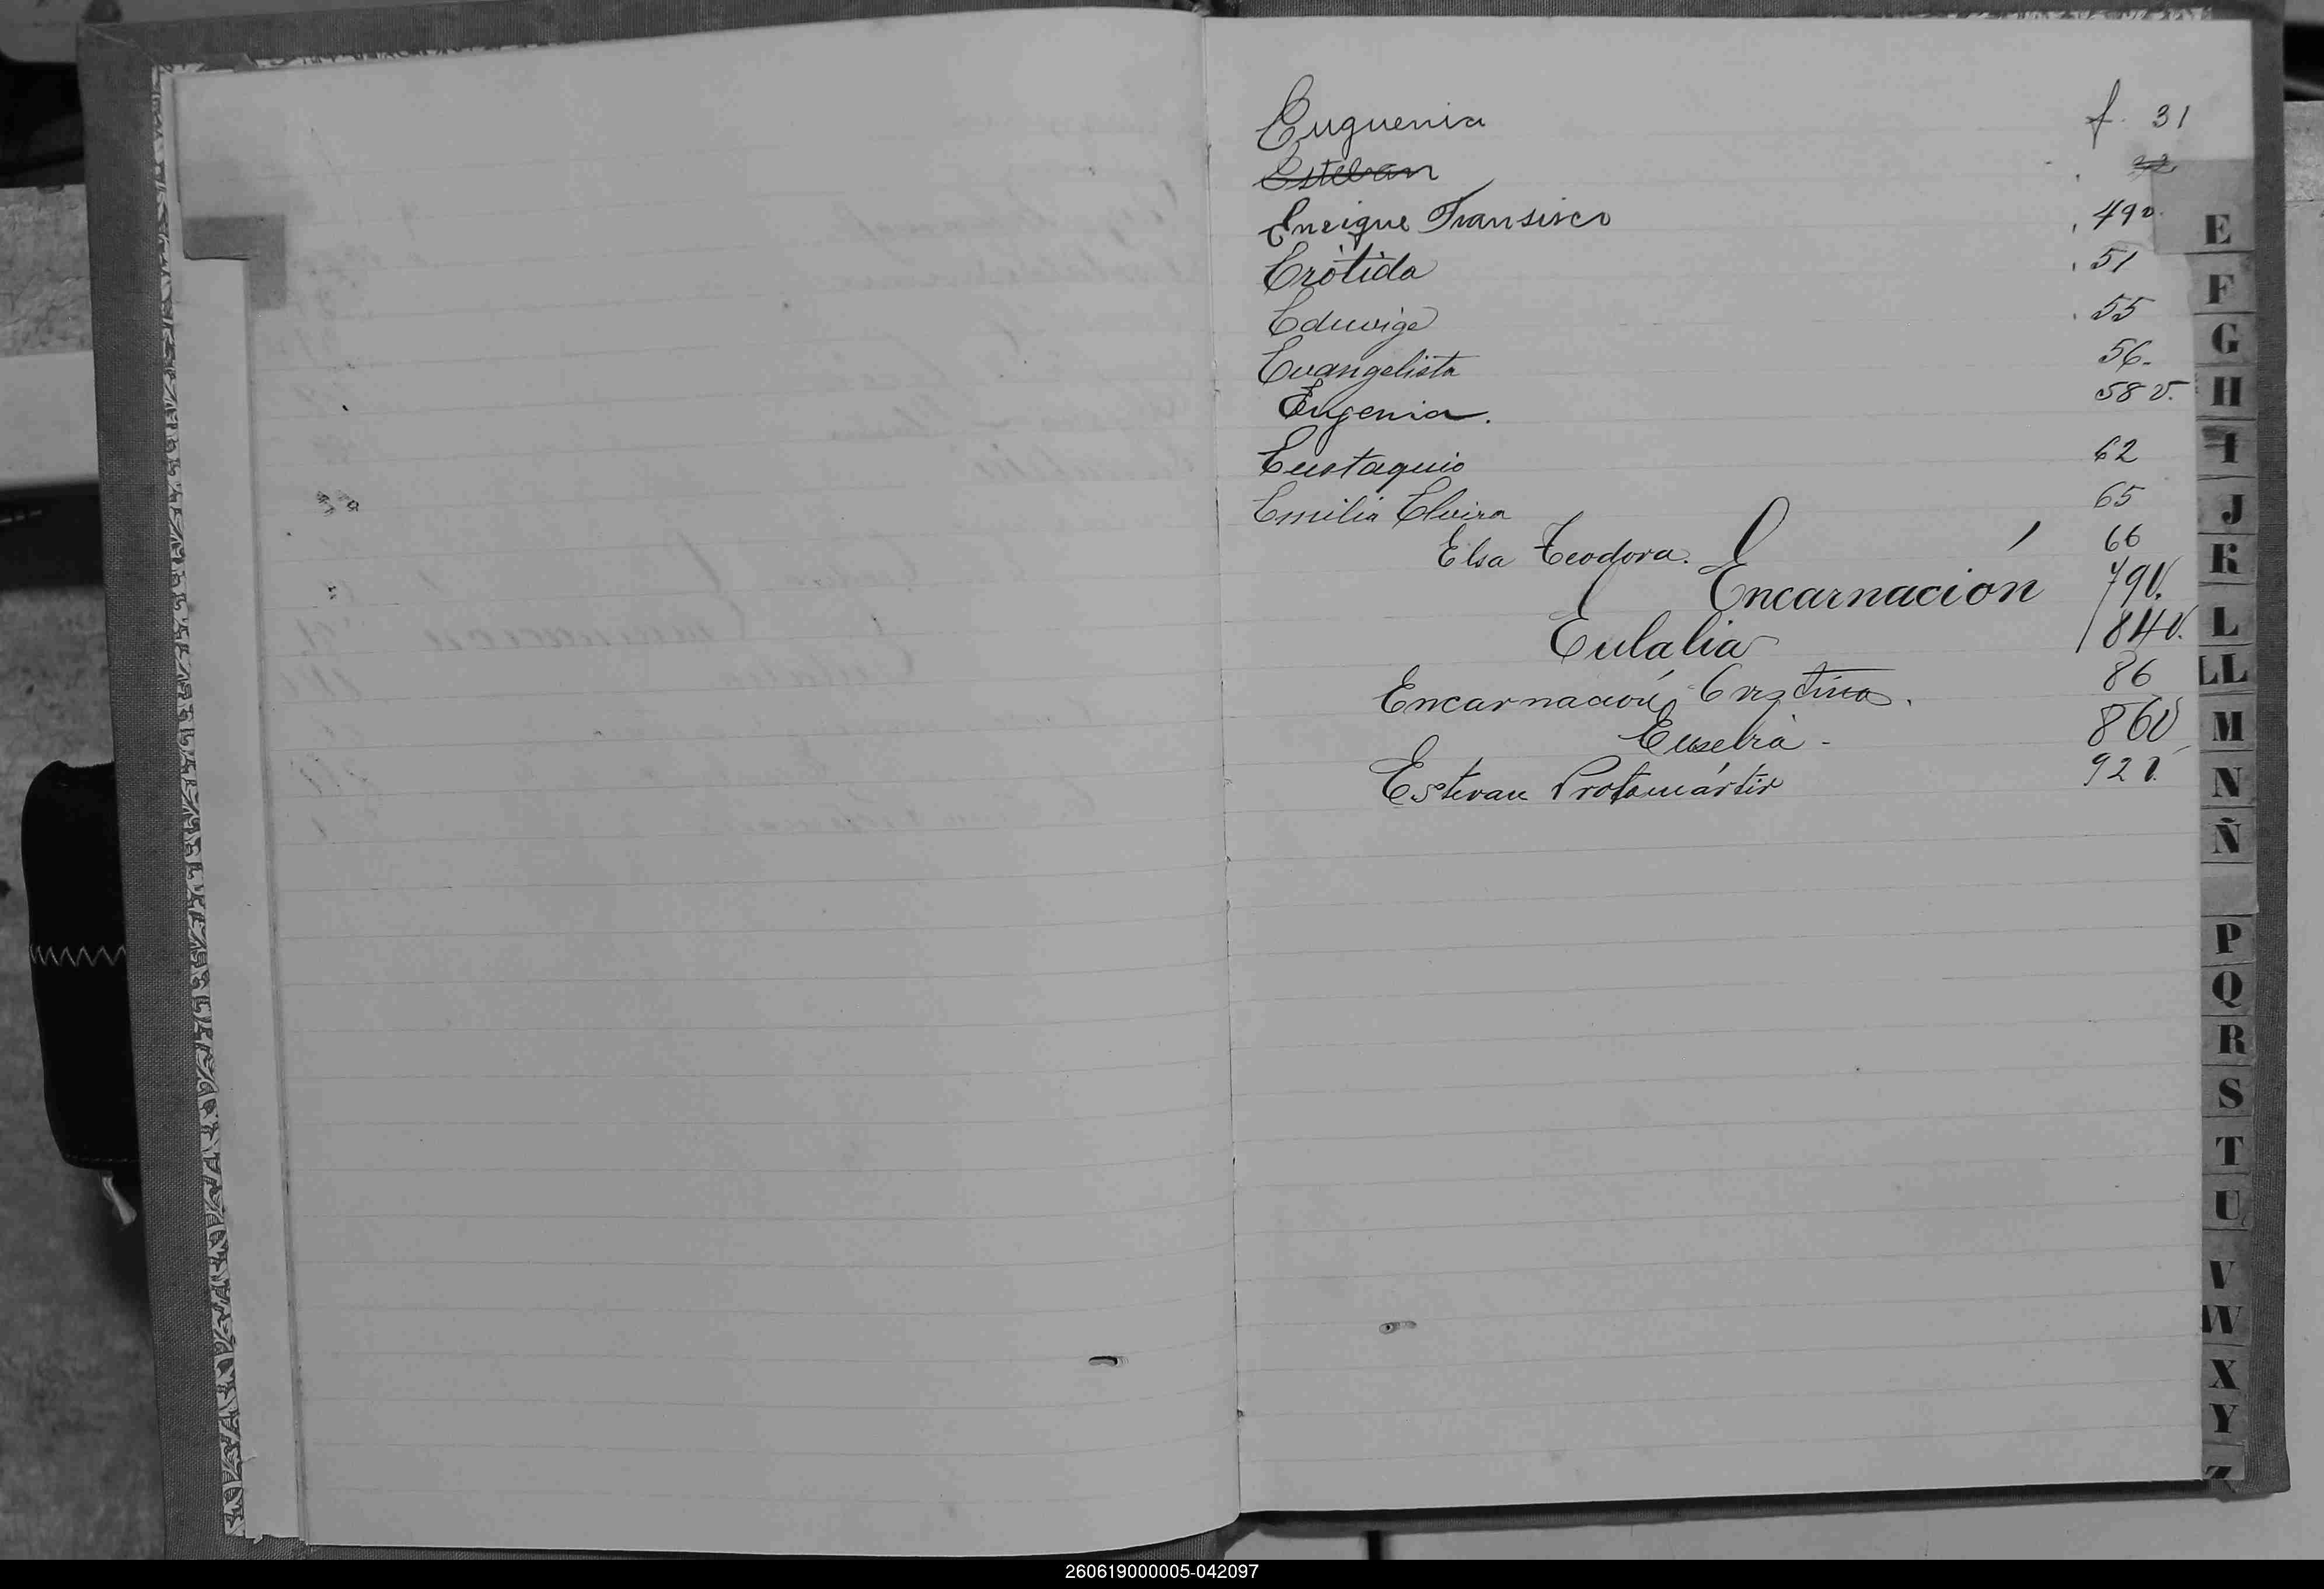 Euguenia f. 31
Esteban
Enrique Fransisco 49v.
Erótida 51
Eduvige 55
Evangelista 56.
Eugenia. 58 v.
Eustaquio 62
Emilia Elvira 65
Elsa Teodora. 66
Encarnación 79v.
Eulalia 84v.
Encarnación 86
Eusebia - 86v
Estevan Protomártir 92v.
E
F
G
H
I
J
K
L
LL
M
N
Ñ
P
Q
R
S
T
U
V
W
X
Y
Z
260619000005-042097